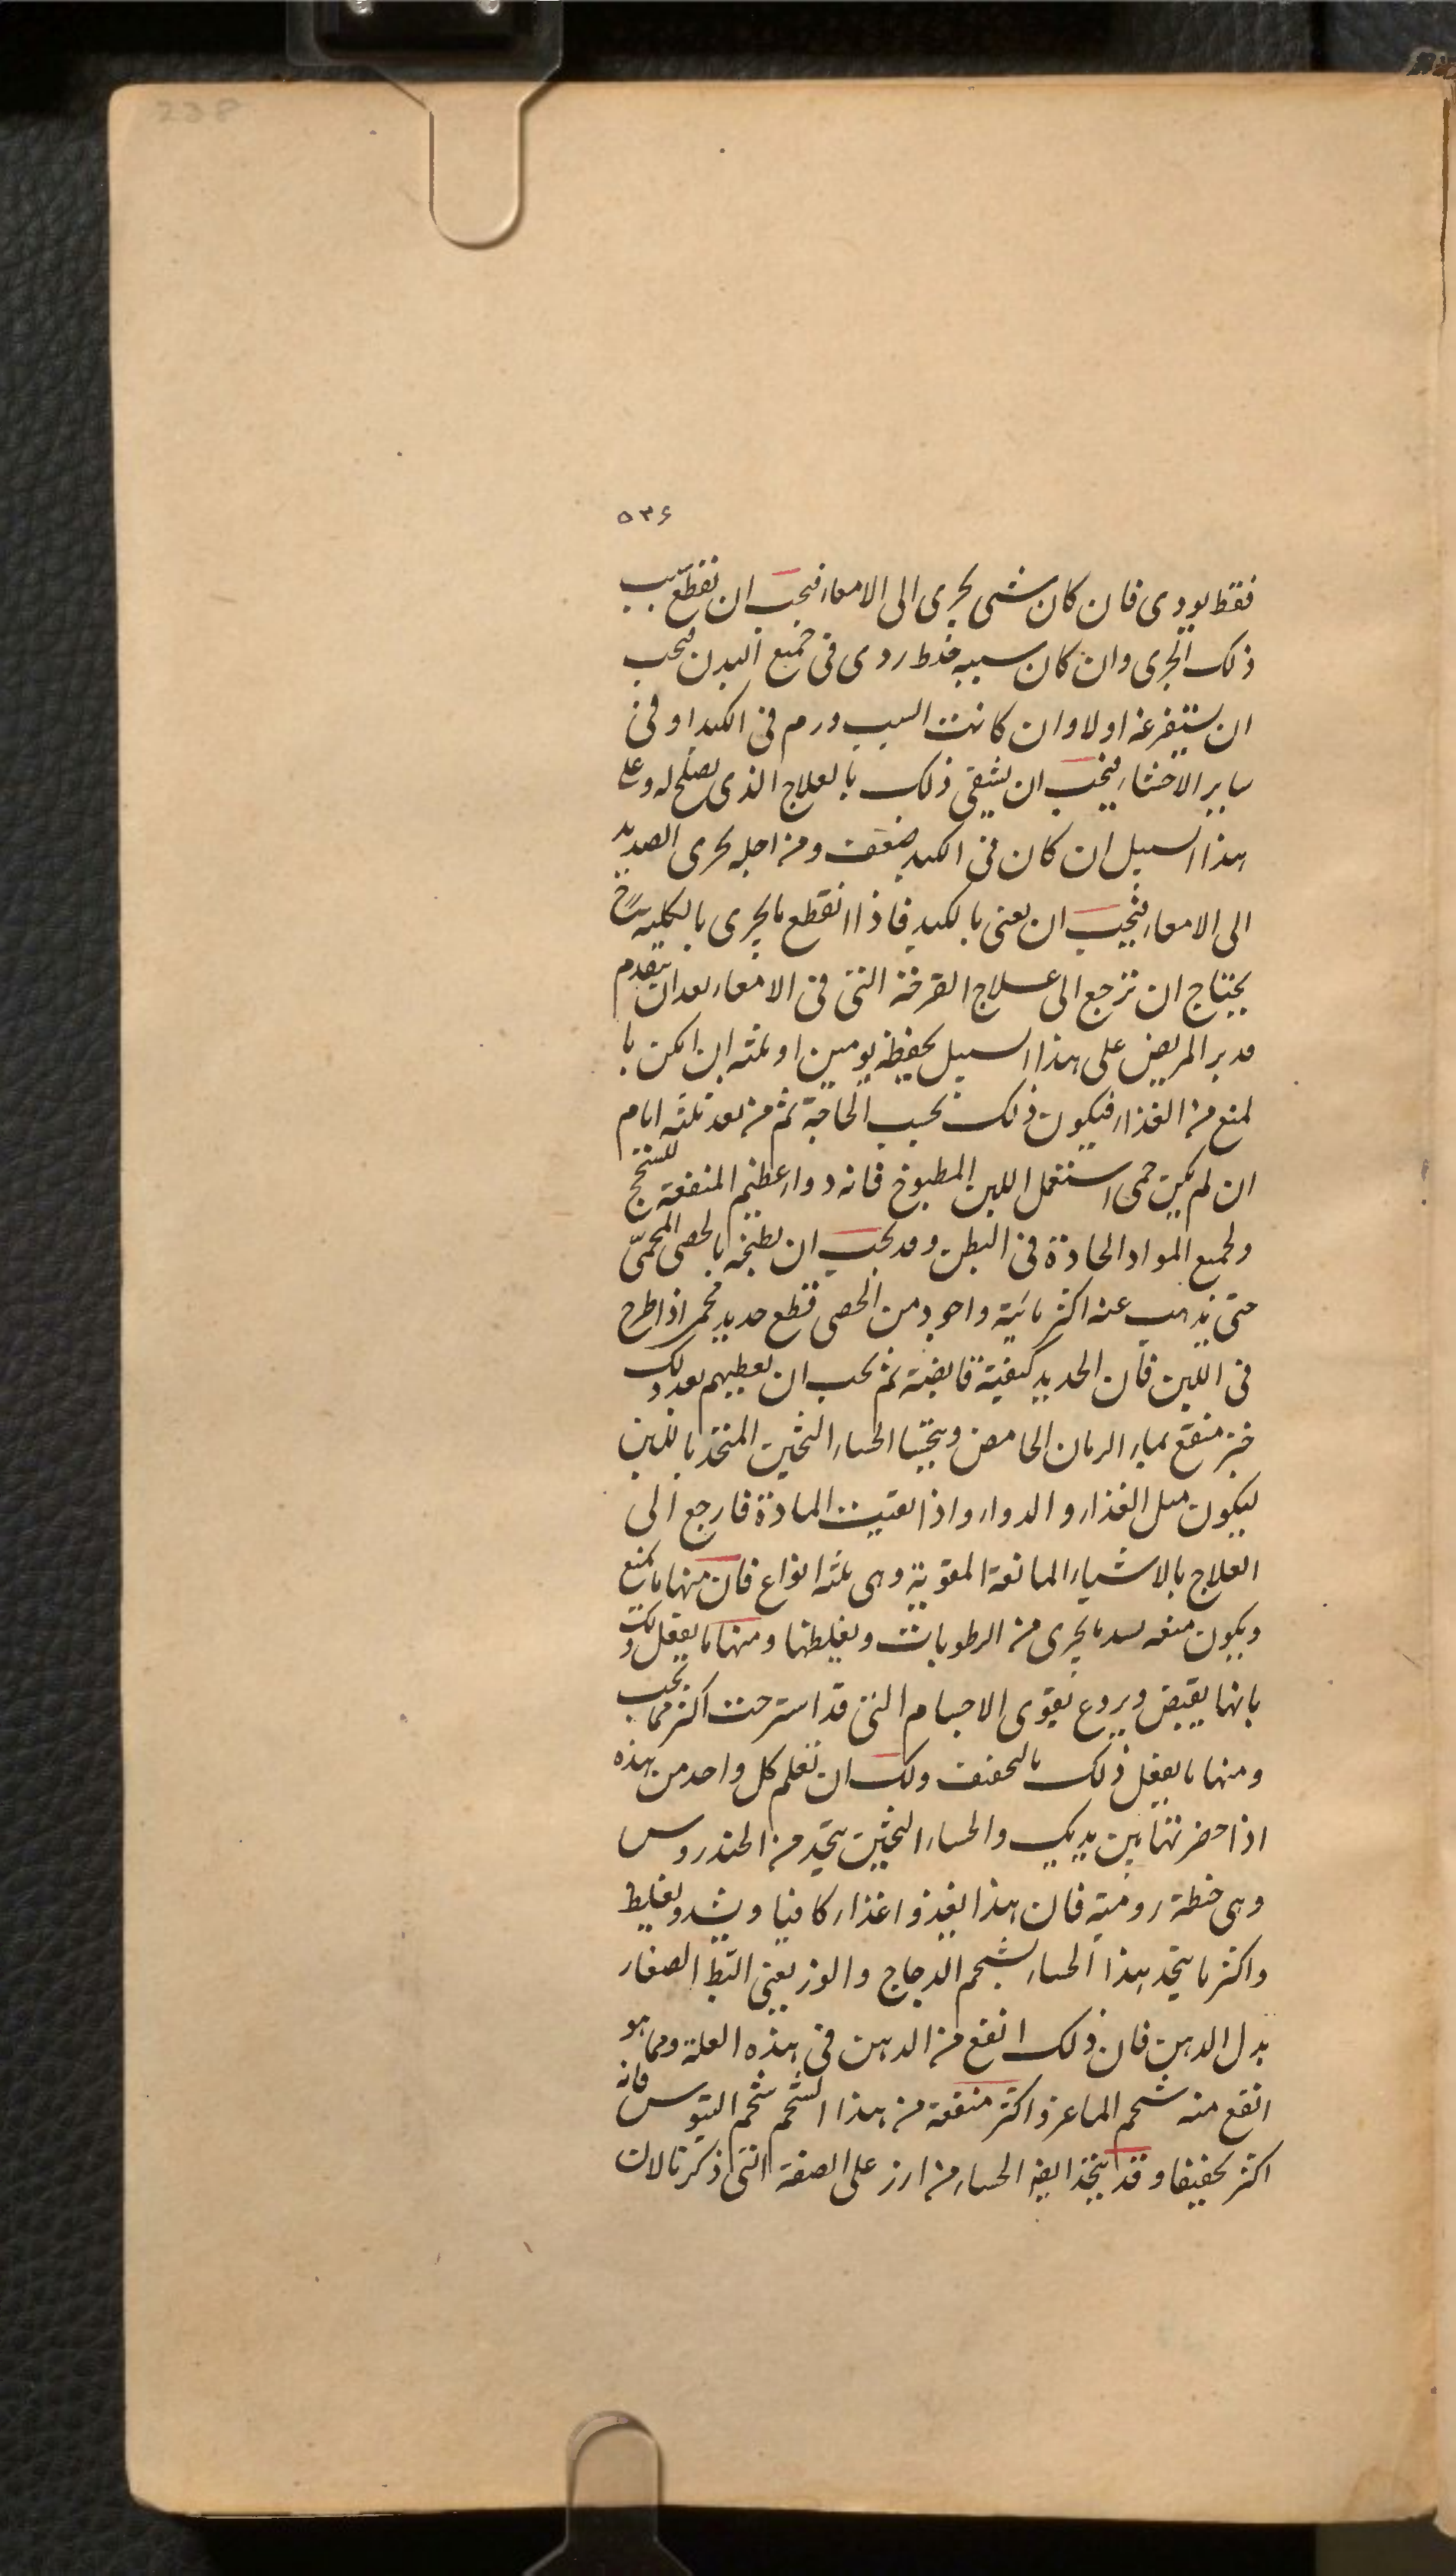 238
۵۳۶
فقط يودى فان كان شى يجرى الى الامعاء فيجب ان تقطع سبب
ذلك الجرى وان كان سببه خلط ردى فى جميع البدن فيجب
ان يستفرغه اولا وان كانت السبب ورم فى الكبد او فى
ساير الاحشاء فيجب ان يشفى ذلك بالعلاج الذى يصلح له وعلى
هذا السبيل ان كان فى الكبد ضعف ومن اجله يجرى الصديد
الى الامعاء فيجب ان يعنى بالكبد فاذا انقطع ما يجرى بالكلية
يحتاج ان ترجع الى علاج القرحة التى فى الامعاء بعد ان يتقدم
مدبر المريض على هذا السبيل يحفظه يومين او ثلثه ان امكن با
لمنع من الغذاء فيكون ذلك بحسب الحاجة ثم من بعد ثلثه ايام
ان لم يكن حمى استعمل اللبن المطبوخ فانه دواء عظيم المنفعة للسحج
ولجميع المواد الحادة فى البطن وقد يجب ان يطبخه بالحصى المحمّى
حتى يذهب عنه اكثر مائية واجود من الحصى قطع حديد محمى اذا طرح
فى اللبن فان الحديد كيفية قابضة ثم يجب ان يعطيهم بعد ذلك
خبز منقع بماء الرمان الحامض ويتحسا الحساء الثخين المتخذ باللبن
ليكون مثل الغذاء والدواء واذا بقيت المادة فارجع الى
العلاج بالاشياء المانعة المقوية وهى ثلثه انواع فان منها ما يمنع
ويكون منعه بسد ما يجرى من الرطوبات وبغلظها ومنها ما يفعل ذلك
بانها يقبض ويردع يقوى الاجسام التى قد استرخت اكثر مما يجب
ومنها ما يفعل ذلك بالتجفيف ولك ان تعلم كل واحد من هذه
اذا حضرتها بين يديك والحساء الثخين يتخذ من الخندروس
وهى حنطة رومية فان هذا يغذوا غذاء كافيا ويشد ويغلظ
واكثر ما يتخذ هذا الحساء بشحم الدجاج والوز يعنى البط الصغار
بدل الدهن فان ذلك انفع من الدهن فى هذه العلة ومما هو
انفع منه شحم الماعز واكثر منفعة من هذا الشحم شحم التيوس فانه
اكثر تجفيفا وقد يتخذ ايضا الحساء من ارز على الصفة التى ذكرنا لان